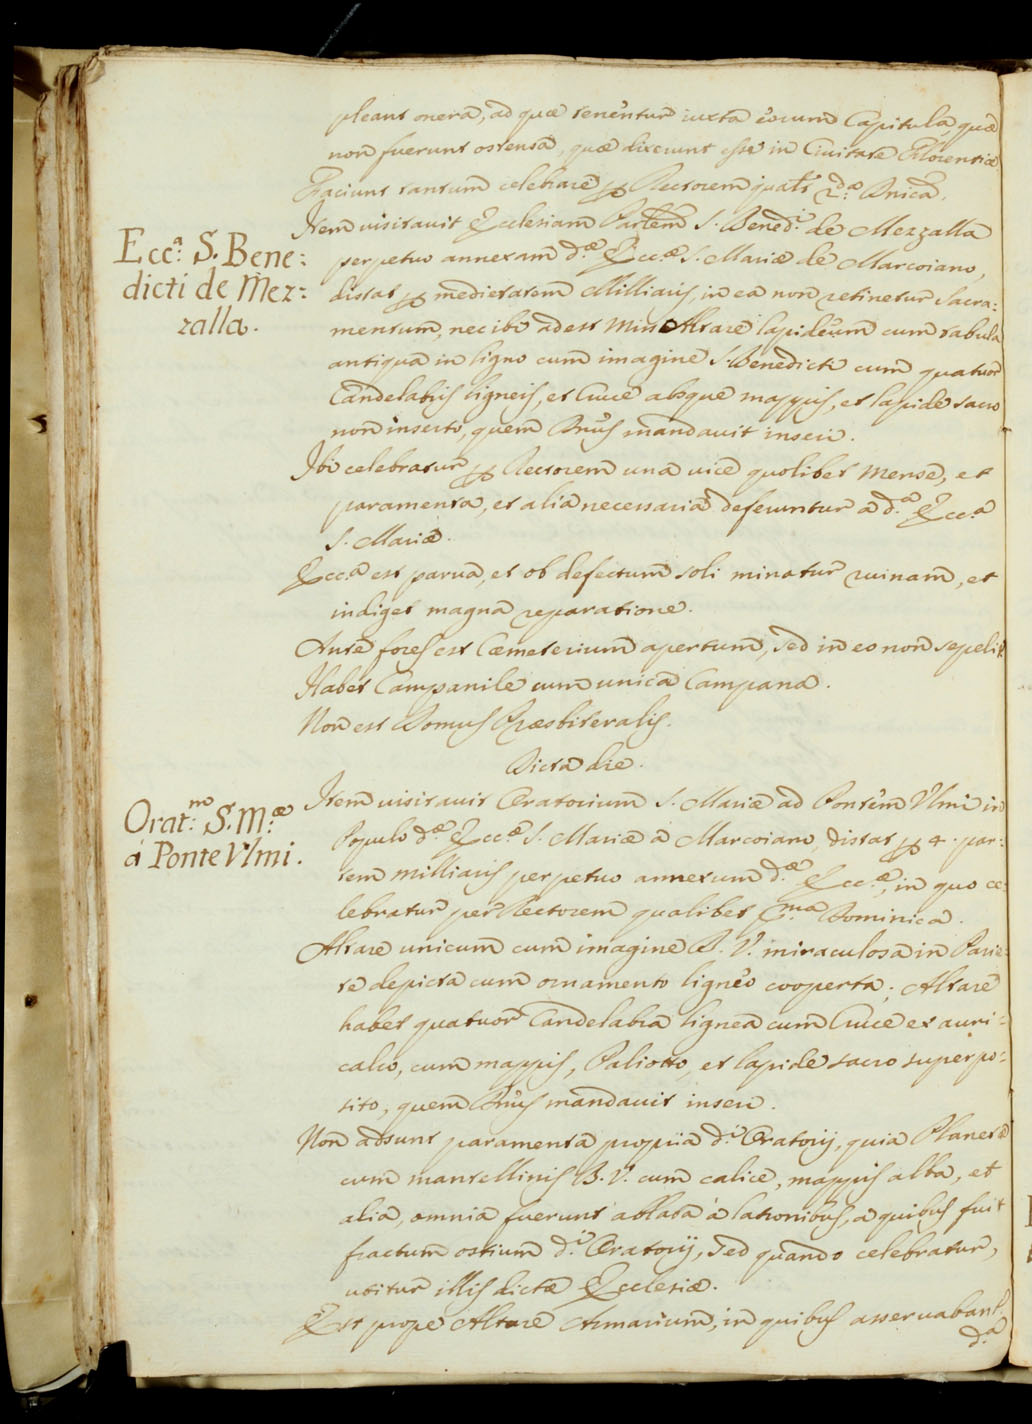 pleant onera, ad quæ tenentur iuxta eorum Capitula, quæ
non fuerunt ostensa, quæ dixerunt esse in Ciuitate Florentiæ
Faciunt tantum celebrare p Rectorem qualt 2.da Dnica.
Ecc.a S. Bene:
dicti de Mez:
zalla.
Item uisitauit Ecclesiam Parlem S. Bened.i de Mezzalla
perpetuo annexam d.æ Ecc.æ S. Mariæ de Marcoiano,
distat p medietatem Milliaris, in ea non retinetur Sacra:
mentum, nec ibi adest nisi Altare lapideum cum tabula
antiqua in ligno cum imagine S. Benedicti cum quatuor
Candelabris ligneis, et Cruce absque mappis, et lapide sacro
non inserto, quem Dnus mandauit inseri.
Ibi celebratur p Rectorem una uice quolibet Mense, et
paramenta, et alia necessaria deferuntur a d.a Ecc.a
S. Mariæ.
Ecc.a est parua, et ob defectum soli minatur ruinam, et
indiget magna reparatione.
Ante fores est Cæmeterium apertum, sed in eo non sepelit
Habet Campanile cum unica Campana.
Non est Domus Præsbiteralis.
Dicta die.
Orat:no S. M.æ
á Ponte Vlmi.
Item uisitauit Oratorium S. Mariæ ad Pontem Vlmi in
Populo d.æ Ecc.æ S. Mariæ a Marcoiano, distat p 4. par:
tem milliaris perpetuo annexum d.æ Ecc.æ, in quo ce:
lebratur per Rectorem qualibet Dominica.
Altare unicum cum imagine B. V. miraculosa in Parie:
te depicta cum ornamento ligneo cooperta; Altare
habet quatuor Candelabra lignea cum Cruce ex auri:
calco, cum mappis, Paliotto, et lapide sacro superpo:
sito, quem Dnus mandauit inseri.
Non adsunt paramenta propria d.i Oratorij, quia Planeta
cum mantellinis B. V. cum calice, mappis alba, et
alia, omnia fuerunt ablata à latronibus, a quibus fuit
fractum ostium d.i Oratorij, sed quando celebratur,
utitur illis dictæ Ecclesiæ.
Est prope Altare Armarium, in quibus asseruabant.r
d.a